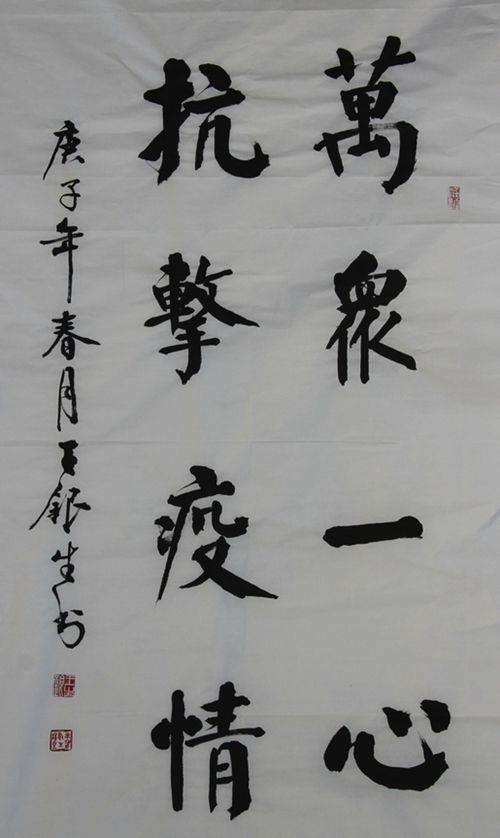 萬眾一心
抗擊疫情
庚子年春月王銀生书